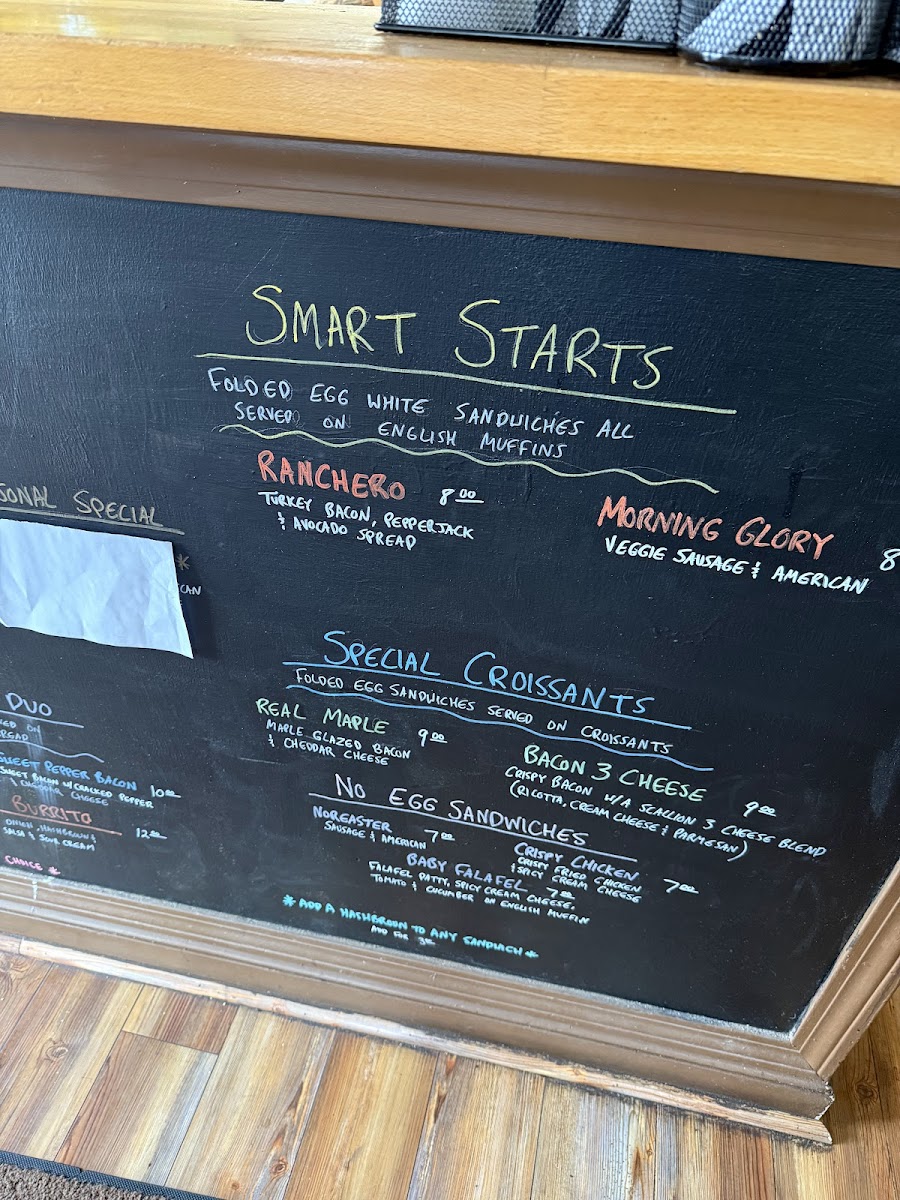 SMART STARTS
FOLDED EGG WHITE SANDWICHES ALL
SERVED ON ENGLISH MUFFINS
RANCHERO 8.00
TURKEY BACON, PEPPERJACK
& AVOCADO SPREAD
MORNING GLORY 8
VEGGIE SAUSAGE & AMERICAN
SPECIAL
*
CAN
DUO
ON
SWEET PEPPER BACON
SWEET BACON W/ CRACKED PEPPER 10.00
& CHEDDAR CHEESE
BURRITO
ONION, HASHBROWN & 12.00
SALSA & SOUR CREAM
CHOICE *
SPECIAL CROISSANTS
FOLDED EGG SANDWICHES SERVED ON CROISSANTS
REAL MAPLE 9.00
MAPLE GLAZED BACON
& CHEDDAR CHEESE
BACON 3 CHEESE 9.00
CRISPY BACON W/A SCALLION 3 CHEESE BLEND
(RICOTTA, CREAM CHEESE & PARMESAN)
NO EGG SANDWICHES
NOREASTER 7.00
SAUSAGE & AMERICAN
CRISPY CHICKEN 7.00
CRISPY FRIED CHICKEN
& SPICY CREAM CHEESE
BABY FALAFEL 7.00
FALAFEL PATTY, SPICY CREAM CHEESE,
TOMATO & CUCUMBER ON ENGLISH MUFFIN
* ADD A HASHBROWN TO ANY SANDWICH *
ADD FOR